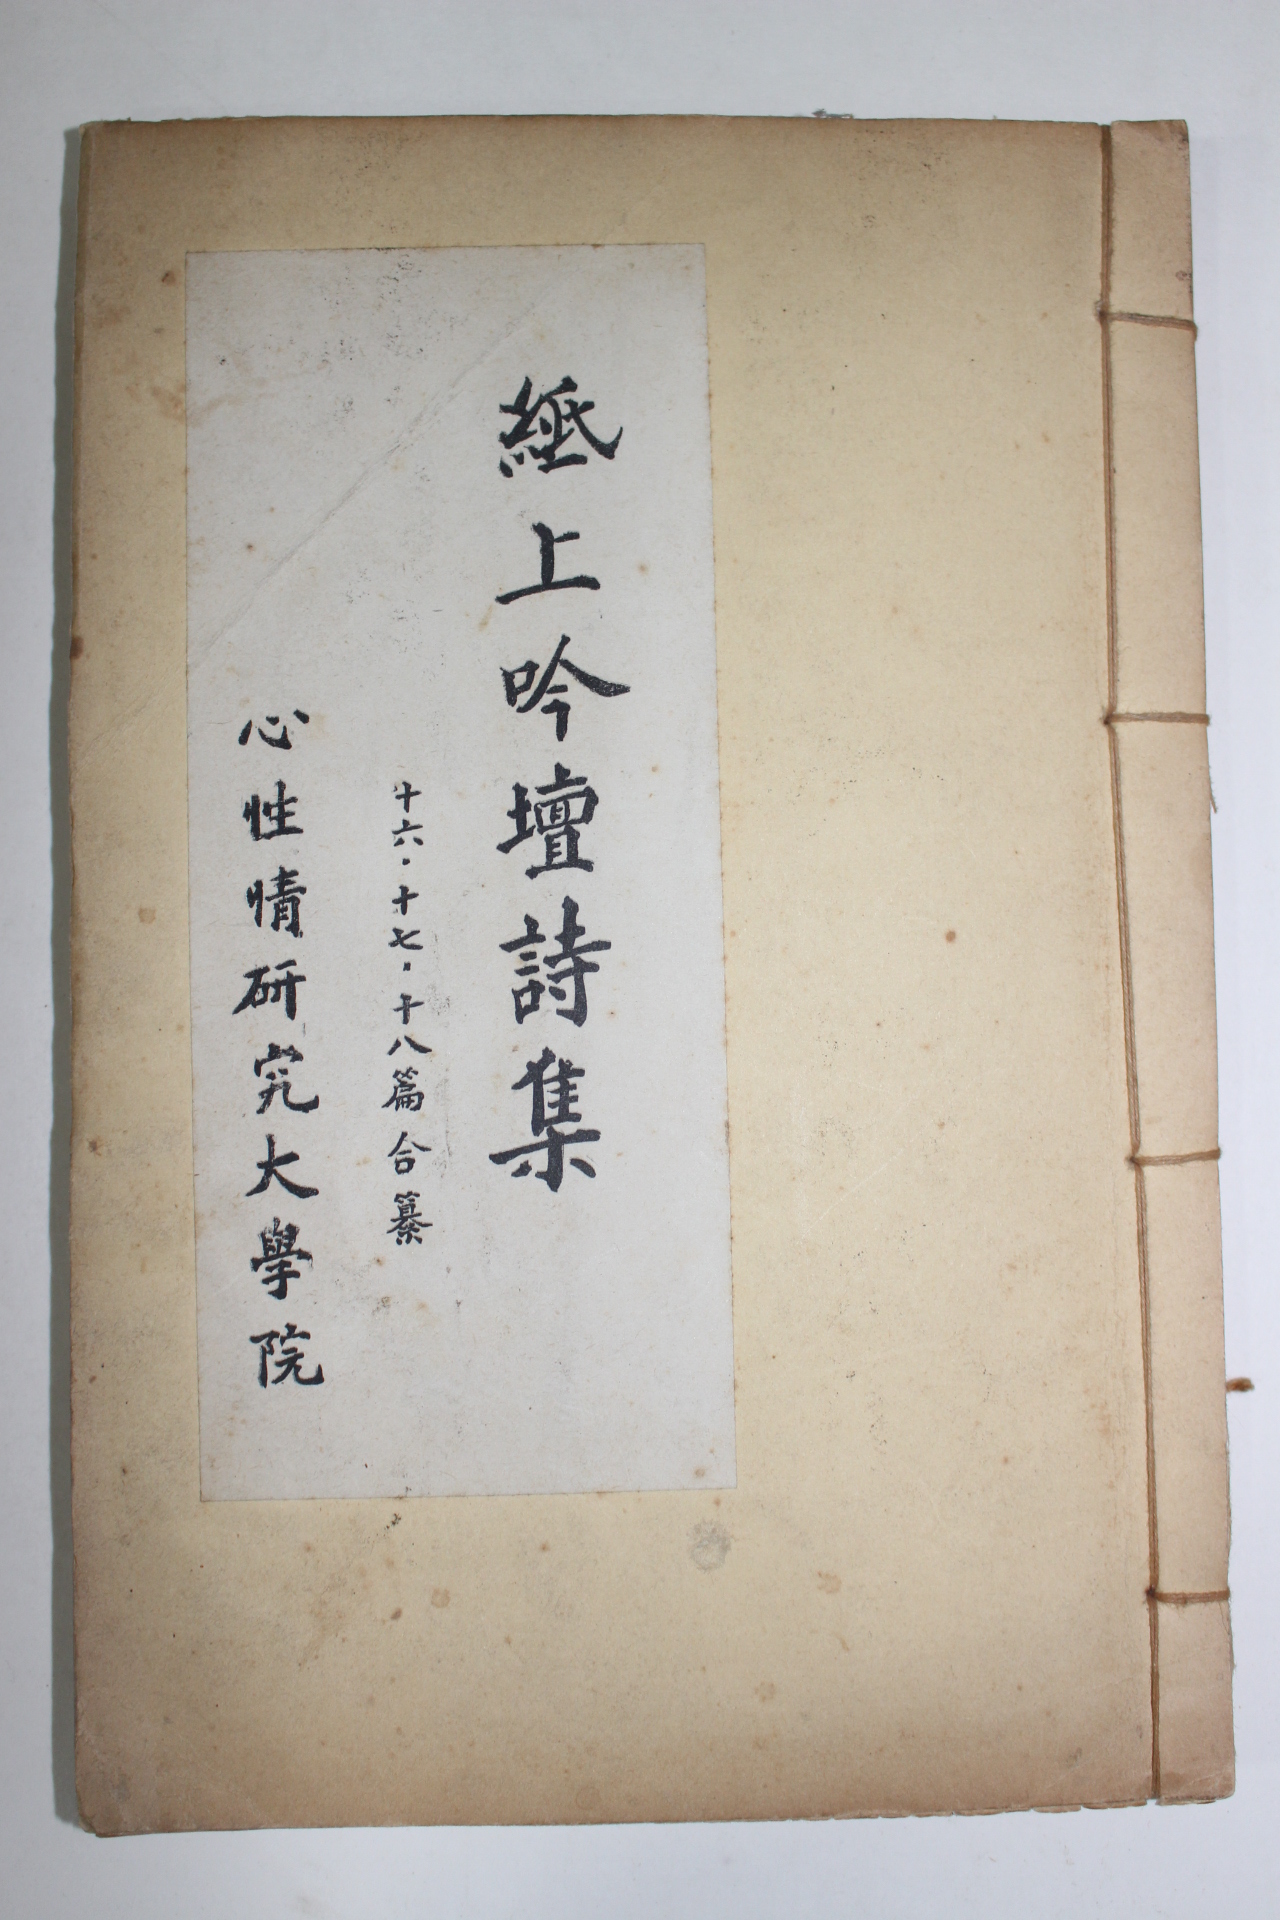 紙上吟壇詩集
十六·十七·十八篇合纂
心性情研究大學院